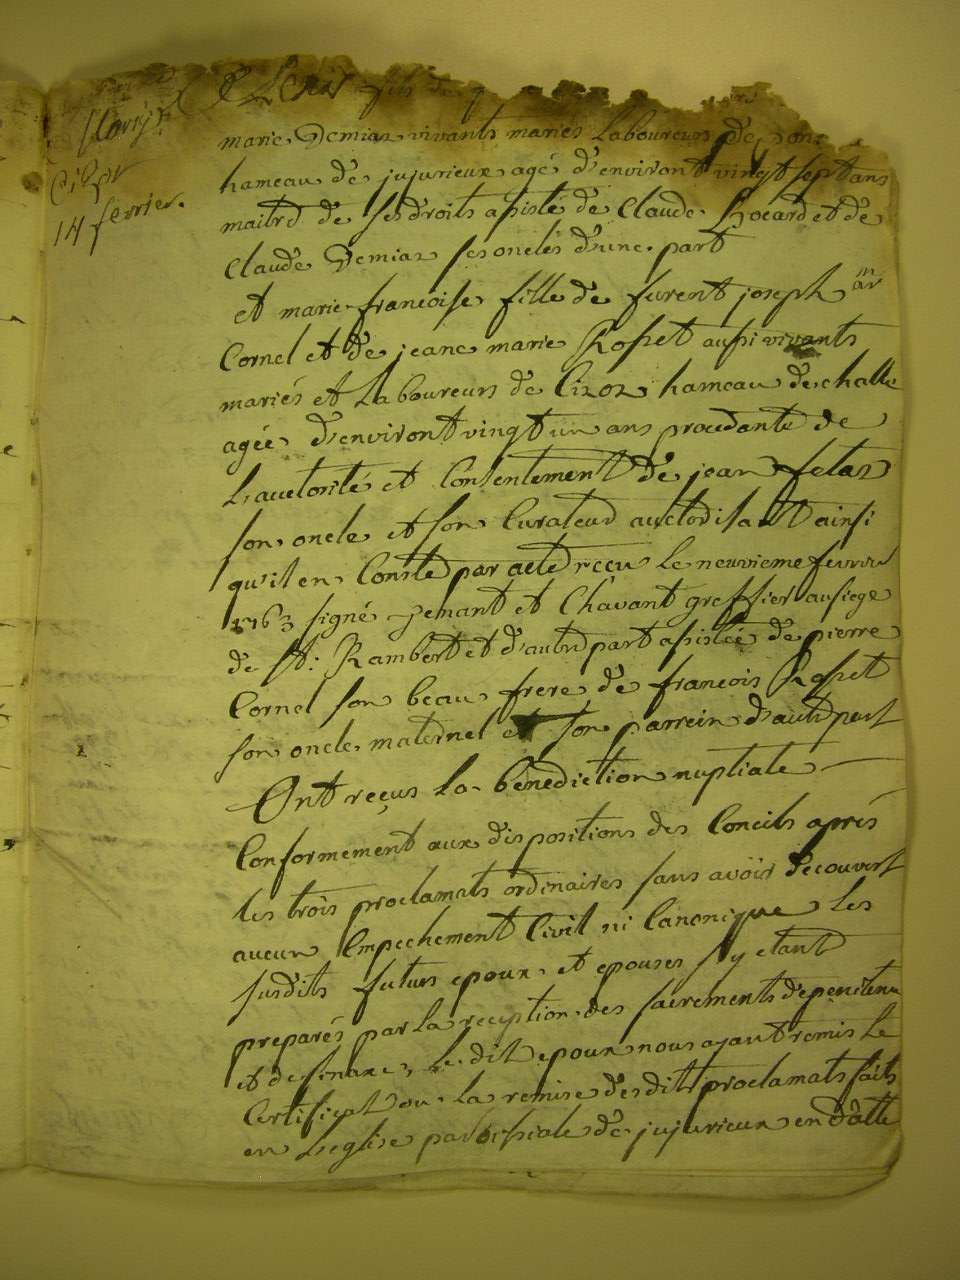 14 fevrier.
fils de
marie Demiaz vivants mariés Laboureurs de
hameau de jujurieux agé d'environt vingt sept ans
maitre de ses droits asisté de Claude hocard et de
Claude Demiaz ses oncles d'une part
et marie francoise fille de furent joseph
Cornel et de jeane marie Rosset aussi vivants
mariés et Laboureurs de Cizoz hameau de challe
agée d'environt vingt un ans procedante de
L'auctorité et Consentement de jean fetaz
son oncle et son Curateur auctorisant ainsi
qu'il en Conste par acte reçu le neuvieme fevrier
1763 signé jemant et Chavant greffier au siege
de st: Rambert et d'autre part asistée de pierre
Cornel son beau frere de francois Rosset
son oncle maternel et son parrein d'autre part
Ont reçus la benediction nuptiale
Conformement aux dispositions des Concils après
les trois proclamats ordinaires sans avoir decouvert
aucun Empechement Civil ni Canonique les
susdits futurs epoux et epouses s'y etant
preparés par la reception des sacrements de penitence
et de le dit epoux nous ayant remis le
Certificat ou la remise desdits proclamats faits
en L'eglise paroissiale de jujurieux en datte